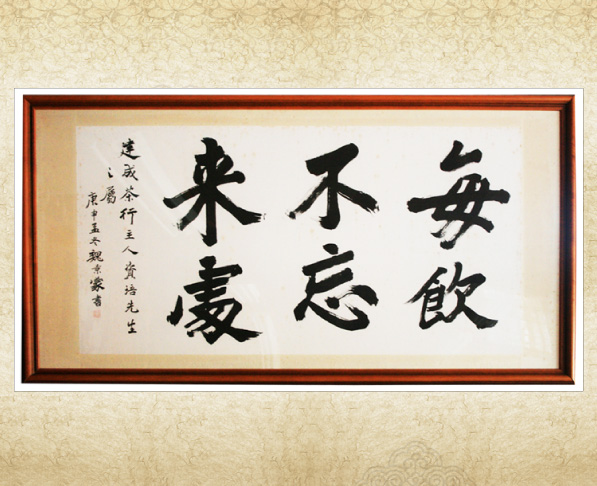 每飲
不忘
来處
建成茶行主人資培先生
之屬
庚申孟冬魏景蒙書